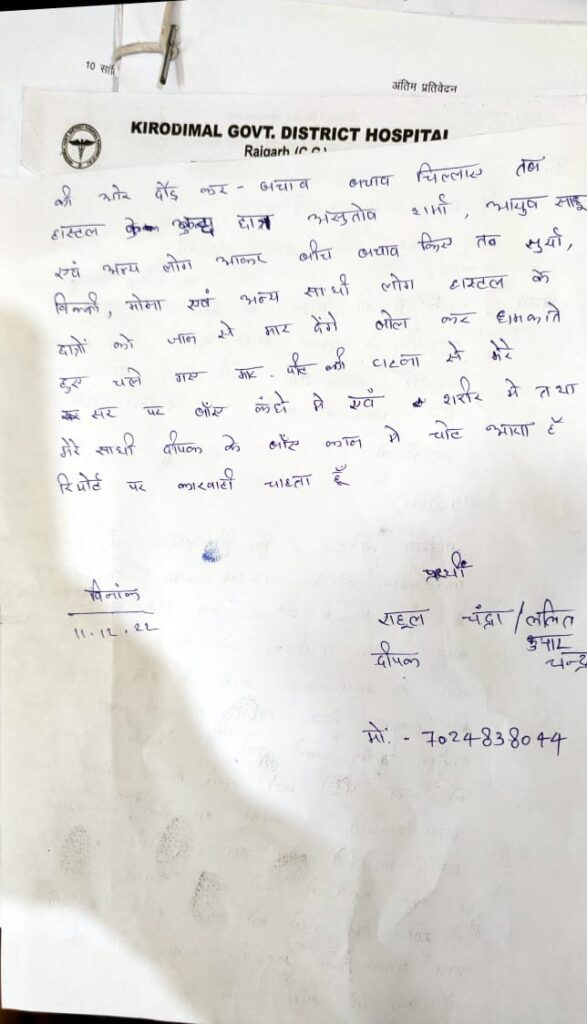 10
अंतिम प्रतिवेदन
KIRODIMAL GOVT. DISTRICT HOSPITAL
Raigarh (C.G.)
की ओर दौड़ कर - बचाव बचाव चिल्लाए तब
हास्टल के छात्र असुतोष शर्मा, आयुष साहू
एवं अन्य लोग आकर बीच बचाव किए तब सुर्या,
विक्की, मोना एवं अन्य साथी लोग हास्टल के
छात्रों को जान से मार देंगे बोल कर धमकाते
हुए चले गए मार-पीट की घटना से मेरे
सर पर बाँए कंधे मे एवं शरीर मे तथा
मेरे साथी दीपक के बाँए कान मे चोट आया है
रिपोर्ट पर कारवाही चाहता हूँ
प्रार्थी
दिनांक
11.12.22
राहूल चंद्रा / ललित
कुमार
चन्द्र
दीपक
मो. - 7024838044